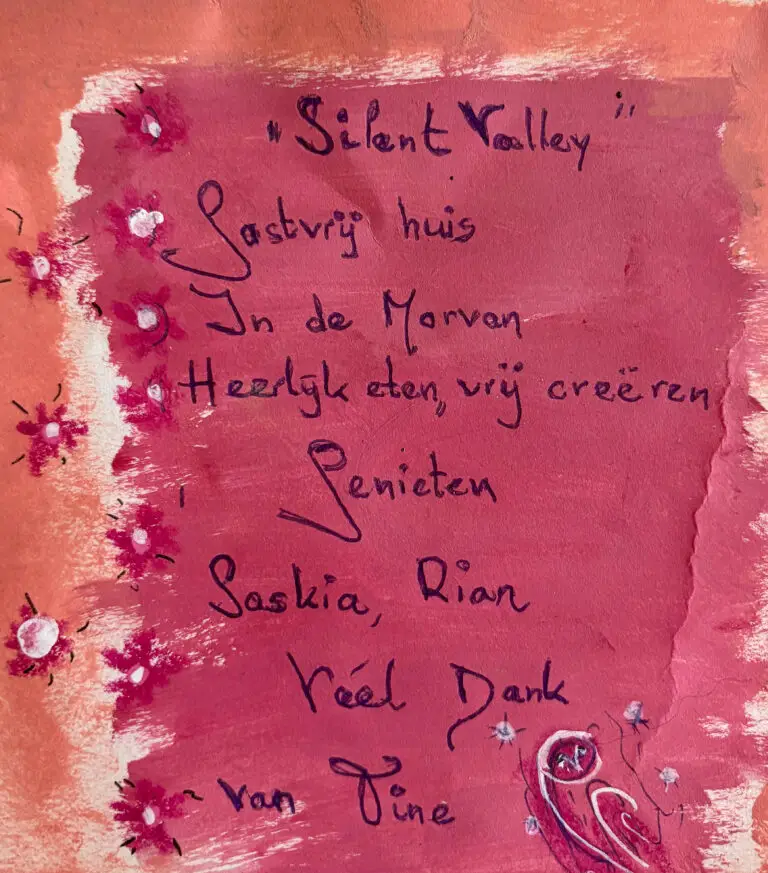 "Silent Valley"
Gastvrij huis
In de Morvan
Heerlijk eten, vrij creëren
Genieten
Saskia, Rian
Véél Dank
van Tine